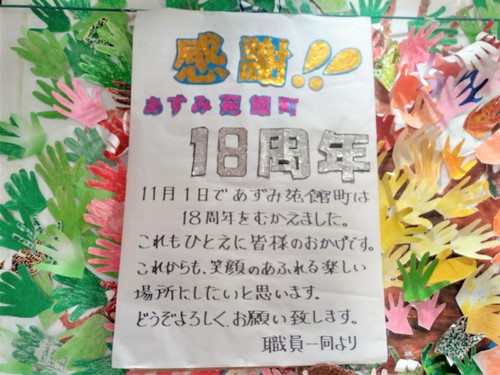 感謝!!
あずみ苑館町
18周年
11月1日であずみ苑館町は
18周年をむかえました。
これもひとえに皆様のおかげです。
これからも、笑顔のあふれる楽しい
場所にしたいと思います。
どうぞよろしく、お願い致します。
職員一同より